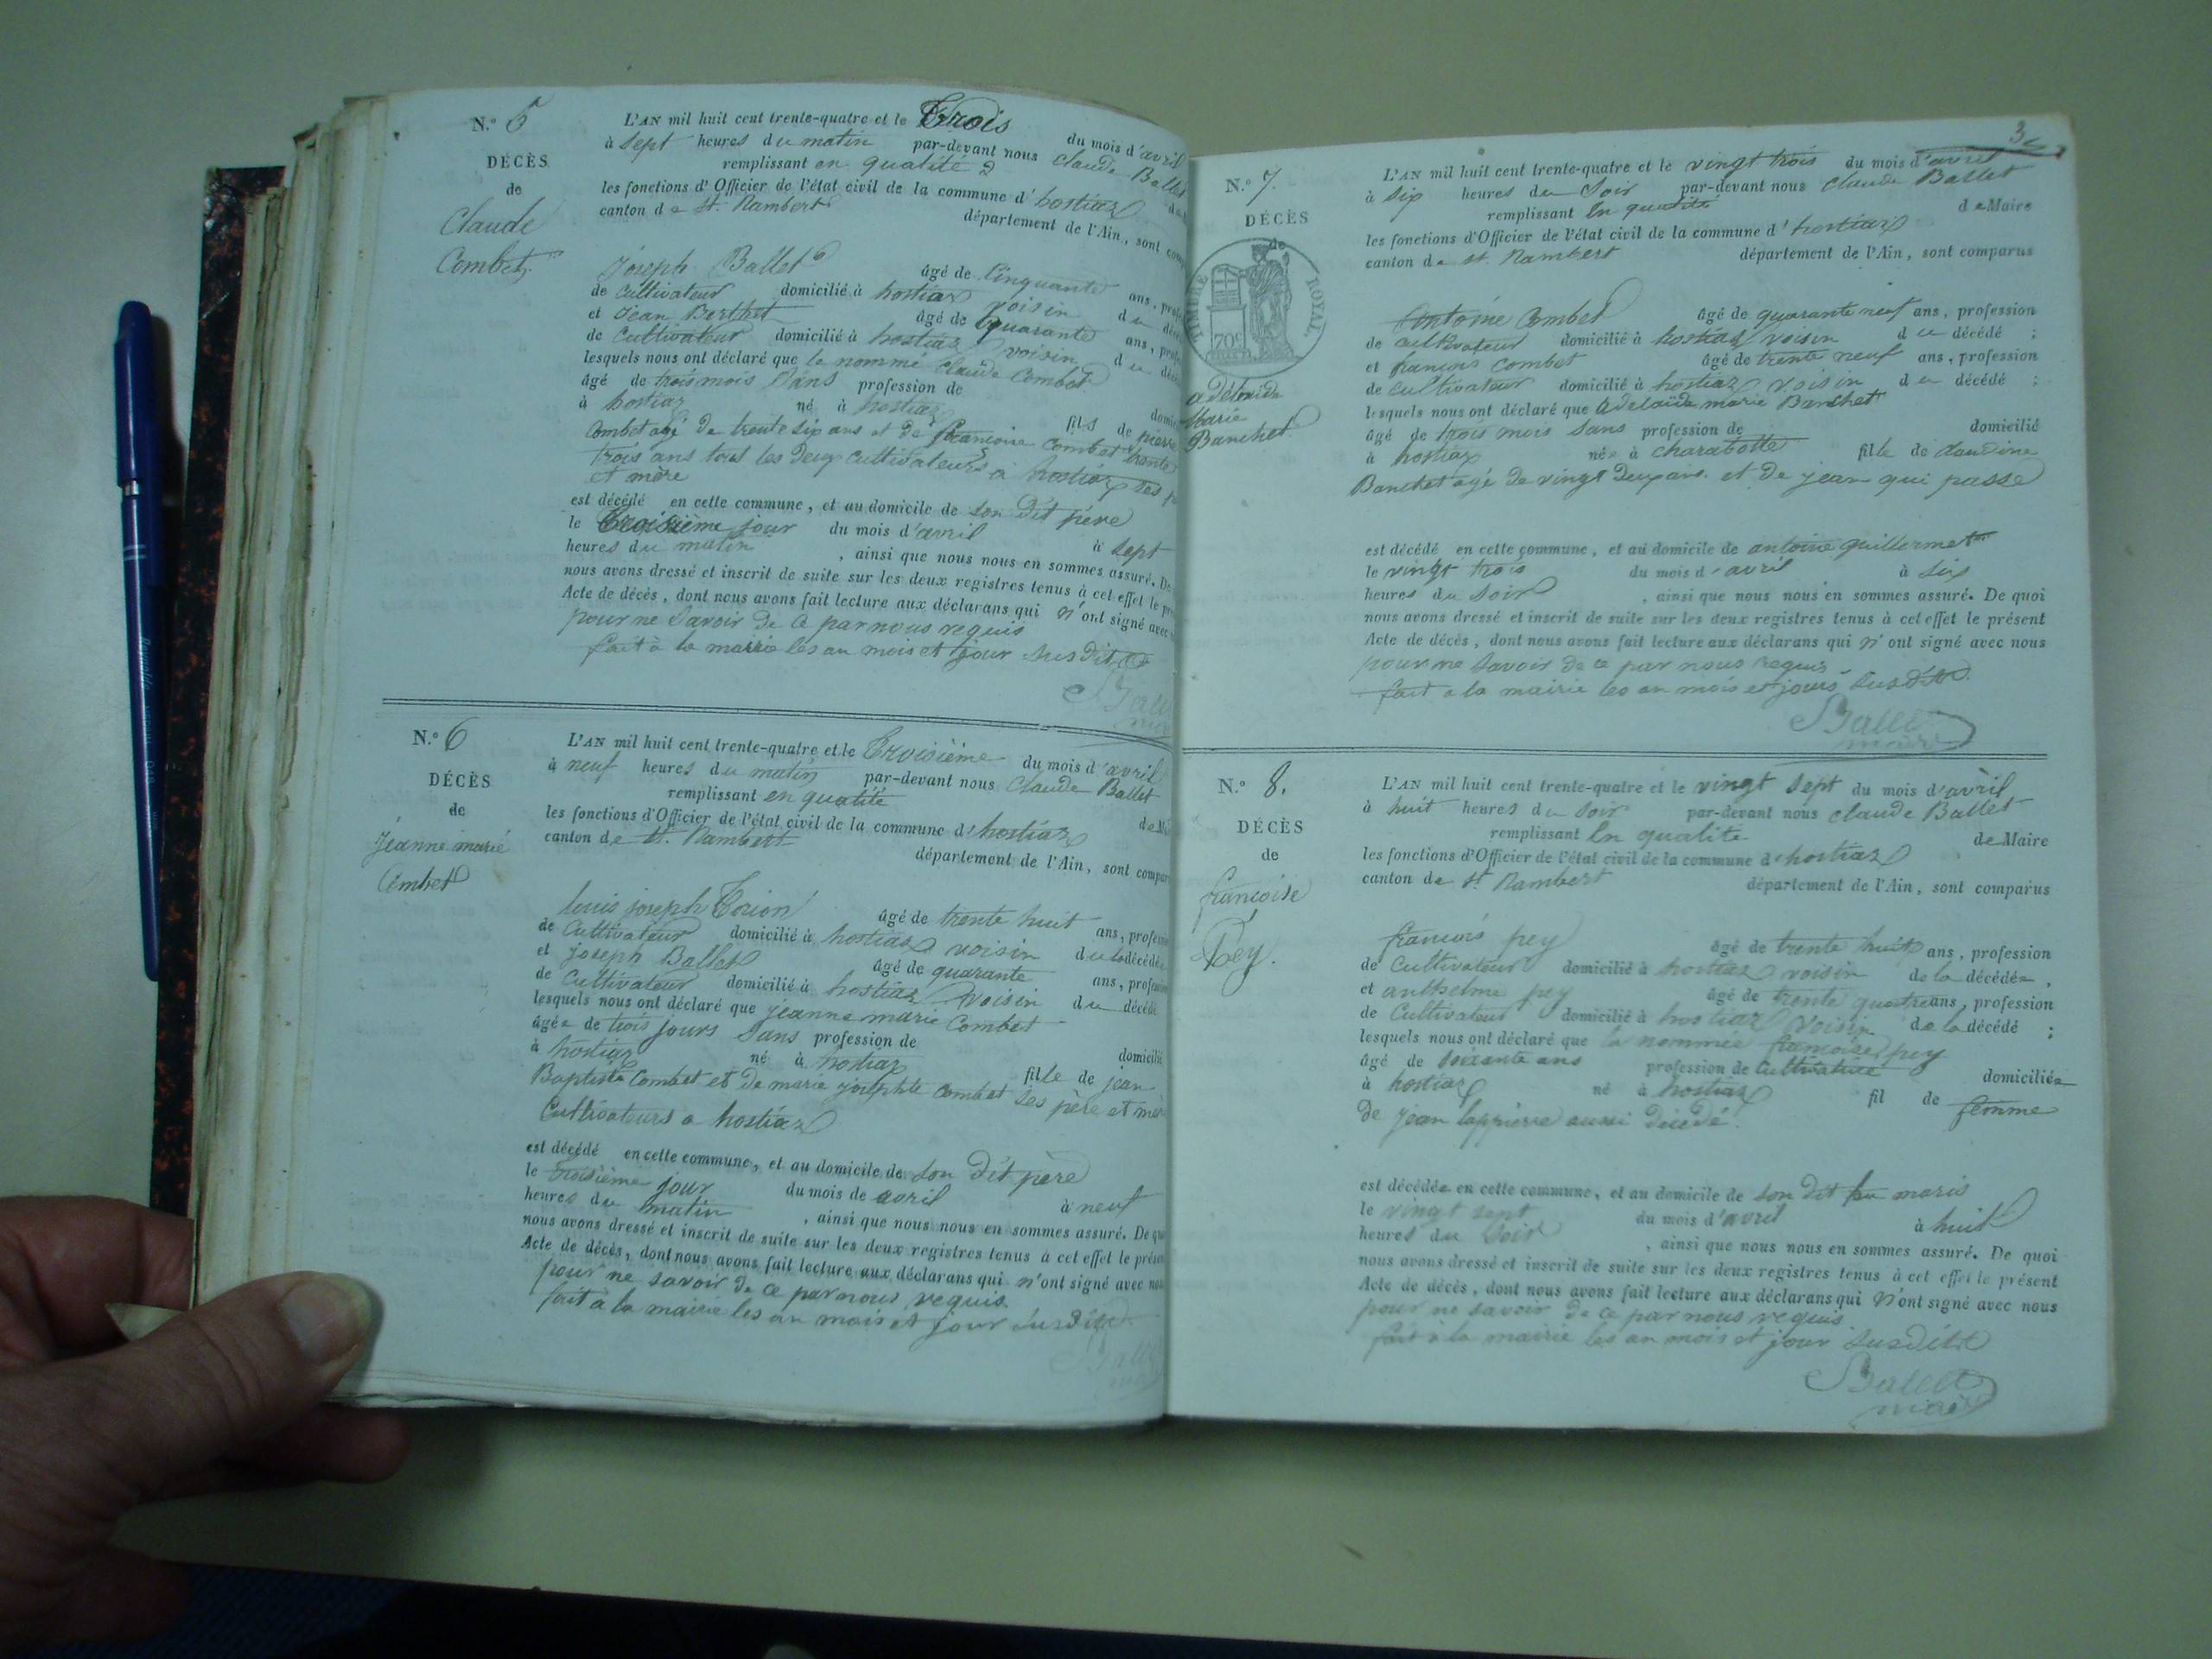 N.° 5
DÉCÈS
de
Claude
Combet.
L'AN mil huit cent trente-quatre et le Trois du mois d'avril
à sept heures du matin par-devant nous Claude Ballet
remplissant en qualité de
les fonctions d'Officier de l'état civil de la commune d'hostiaz
canton de st. Rambert département de l'Ain, sont
Joseph Ballet âgé de Cinquante ans,
de Cultivateur domicilié à hostiaz voisin du
et Jean Berthet âgé de quarante ans,
de Cultivateur domicilié à hostiaz voisin du
lesquels nous ont déclaré que le nommé Claude Combet
âgé de trois mois sans profession de
à hostiaz né à hostiaz fils de pierre
Combet agé de trente six ans et de françoise Combet trente
trois ans tous les deux cultivateurs à hostiaz ses
et mère
est décédé en cette commune, et au domicile de son dit père
le Troisième jour du mois d'avril à sept
heures du matin, ainsi que nous nous en sommes assuré. De
nous avons dressé et inscrit de suite sur les deux registres tenus à cet effet le
Acte de décès, dont nous avons fait lecture aux déclarans qui n'ont signé avec
pour ne savoir de ce par nous requis
fait à la mairie les an mois et jour susdit
N.° 6
DÉCÈS
de
Jeanne marie
Combet
L'AN mil huit cent trente-quatre et le Troisième du mois d'avril
à neuf heures du matin par-devant nous Claude Ballet
remplissant en qualité
les fonctions d'Officier de l'état civil de la commune d'hostiaz
canton de st. Rambert département de l'Ain, sont
louis joseph âgé de trente huit ans,
de Cultivateur domicilié à hostiaz voisin de la décédée
et joseph Ballet âgé de quarante ans,
de Cultivateur domicilié à hostiaz voisin du décédé
lesquels nous ont déclaré que jeanne marie Combet
âgée de trois jours sans profession de
à hostiaz né à hostiaz fille de jean
Baptiste Combet et de marie josephte Combet ses père et
Cultivateurs a hostiaz
est décédé en cette commune, et au domicile de son dit père
le troisième jour du mois de avril à neuf
heures du matin, ainsi que nous nous en sommes assuré. De
nous avons dressé et inscrit de suite sur les deux registres tenus à cet effet le
Acte de décès, dont nous avons fait lecture aux déclarans qui n'ont signé avec
pour ne savoir de ce par nous requis.
fait à la mairie les an mois et jour susdits
N.° 7.
DÉCÈS
de
TIMBRE ROYAL
70c
adelaide
Marie
Banchet
L'AN mil huit cent trente-quatre et le vingt trois du mois d'avril
à six heures du soir par-devant nous Claude Ballet
remplissant en qualité de Maire
les fonctions d'Officier de l'état civil de la commune d'hostiaz
canton de st. Rambert département de l'Ain, sont comparus
Antoine Combet âgé de quarante neuf ans, profession
de cultivateur domicilié à hostiaz voisin du décédé ;
et françois Combet âgé de trente neuf ans, profession
de Cultivateur domicilié à hostiaz voisin du décédé ;
lesquels nous ont déclaré que Adelaïde marie Banchet
âgé de trois mois sans profession de domicilié
à hostiaz née à charabotte fille de claudine
Banchet agé de vingt deux ans. et de jean qui passe
est décédé en cette commune, et au domicile de antoine guillermet
le vingt trois du mois d'avril à six
heures du soir, ainsi que nous nous en sommes assuré. De quoi
nous avons dressé et inscrit de suite sur les deux registres tenus à cet effet le présent
Acte de décès, dont nous avons fait lecture aux déclarans qui n'ont signé avec nous
pour ne savoir de ce par nous requis
fait a la mairie les an mois et jours susdits
Ballet
maire
N.° 8.
DÉCÈS
de
françoise
Pey.
L'AN mil huit cent trente-quatre et le vingt sept du mois d'avril
à huit heures du soir par-devant nous Claude Ballet
remplissant en qualité de Maire
les fonctions d'Officier de l'état civil de la commune d'hostiaz
canton de st Rambert département de l'Ain, sont comparus
françois pey âgé de trente huit ans, profession
de Cultivateur domicilié à hostiaz voisin de la décédée,
et anthelme pey âgé de trente quatre ans, profession
de Cultivateur domicilié à hostiaz voisin de la décédé ;
lesquels nous ont déclaré que la nommée françoise pey
âgé de soixante ans profession de Cultivatrice domiciliée
à hostiaz né à hostiaz fil de femme
de jean lappierre aussi décédé.
est décédée en cette commune, et au domicile de son dit feu maris
le vingt sept du mois d'avril à huit
heures du soir, ainsi que nous nous en sommes assuré. De quoi
nous avons dressé et inscrit de suite sur les deux registres tenus à cet effet le présent
Acte de décès, dont nous avons fait lecture aux déclarans qui n'ont signé avec nous
pour ne savoir de ce par nous requis
fait à la mairie les an mois et jour susdits
Ballet
maire